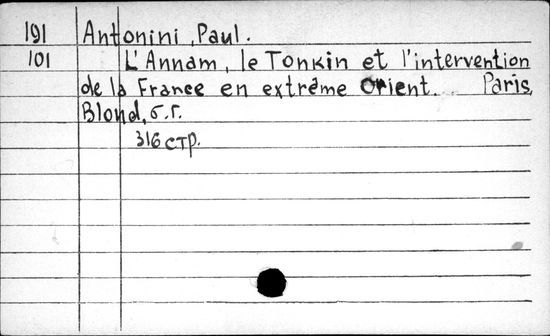 191 Antonini, Paul.
101 L'Annam, le Tonkin et l'intervention
de la France en extrême Orient. Paris,
Blond, б.г.
316 стр.